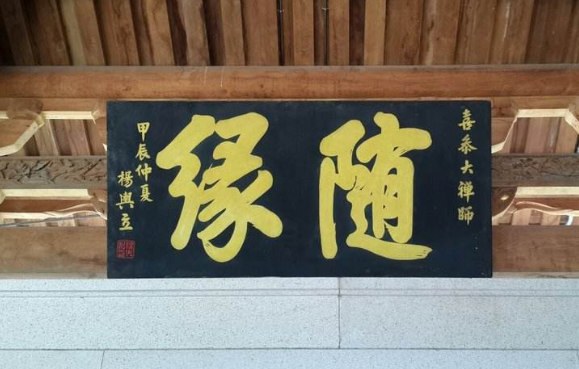 喜泰大禅師
随縁
甲辰仲夏
楊興立